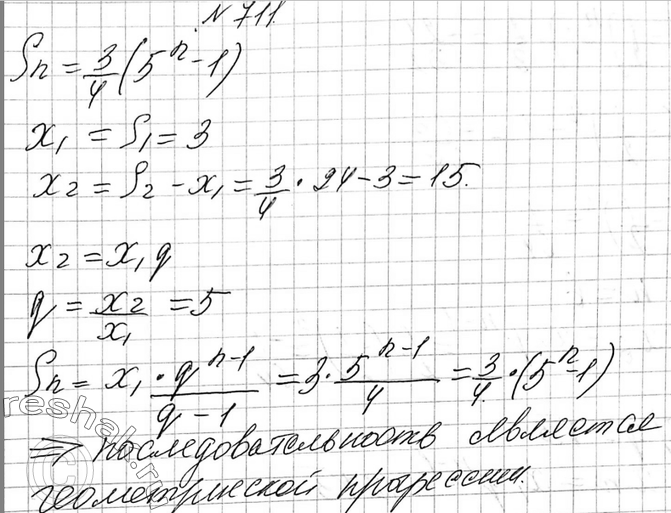 № 711.
Sn = 3/4 (5^n - 1)
x₁ = S₁ = 3
x₂ = S₂ - x₁ = 3/4 · 24 - 3 = 15.
x₂ = x₁ q
q = x₂/x₁ = 5
Sn = x₁ · q^(n-1)/(q - 1) = 3 · 5^(n-1)/4 = 3/4 · (5^n - 1)
⇒ последовательность является
геометрической прогрессии.
reshak.ru